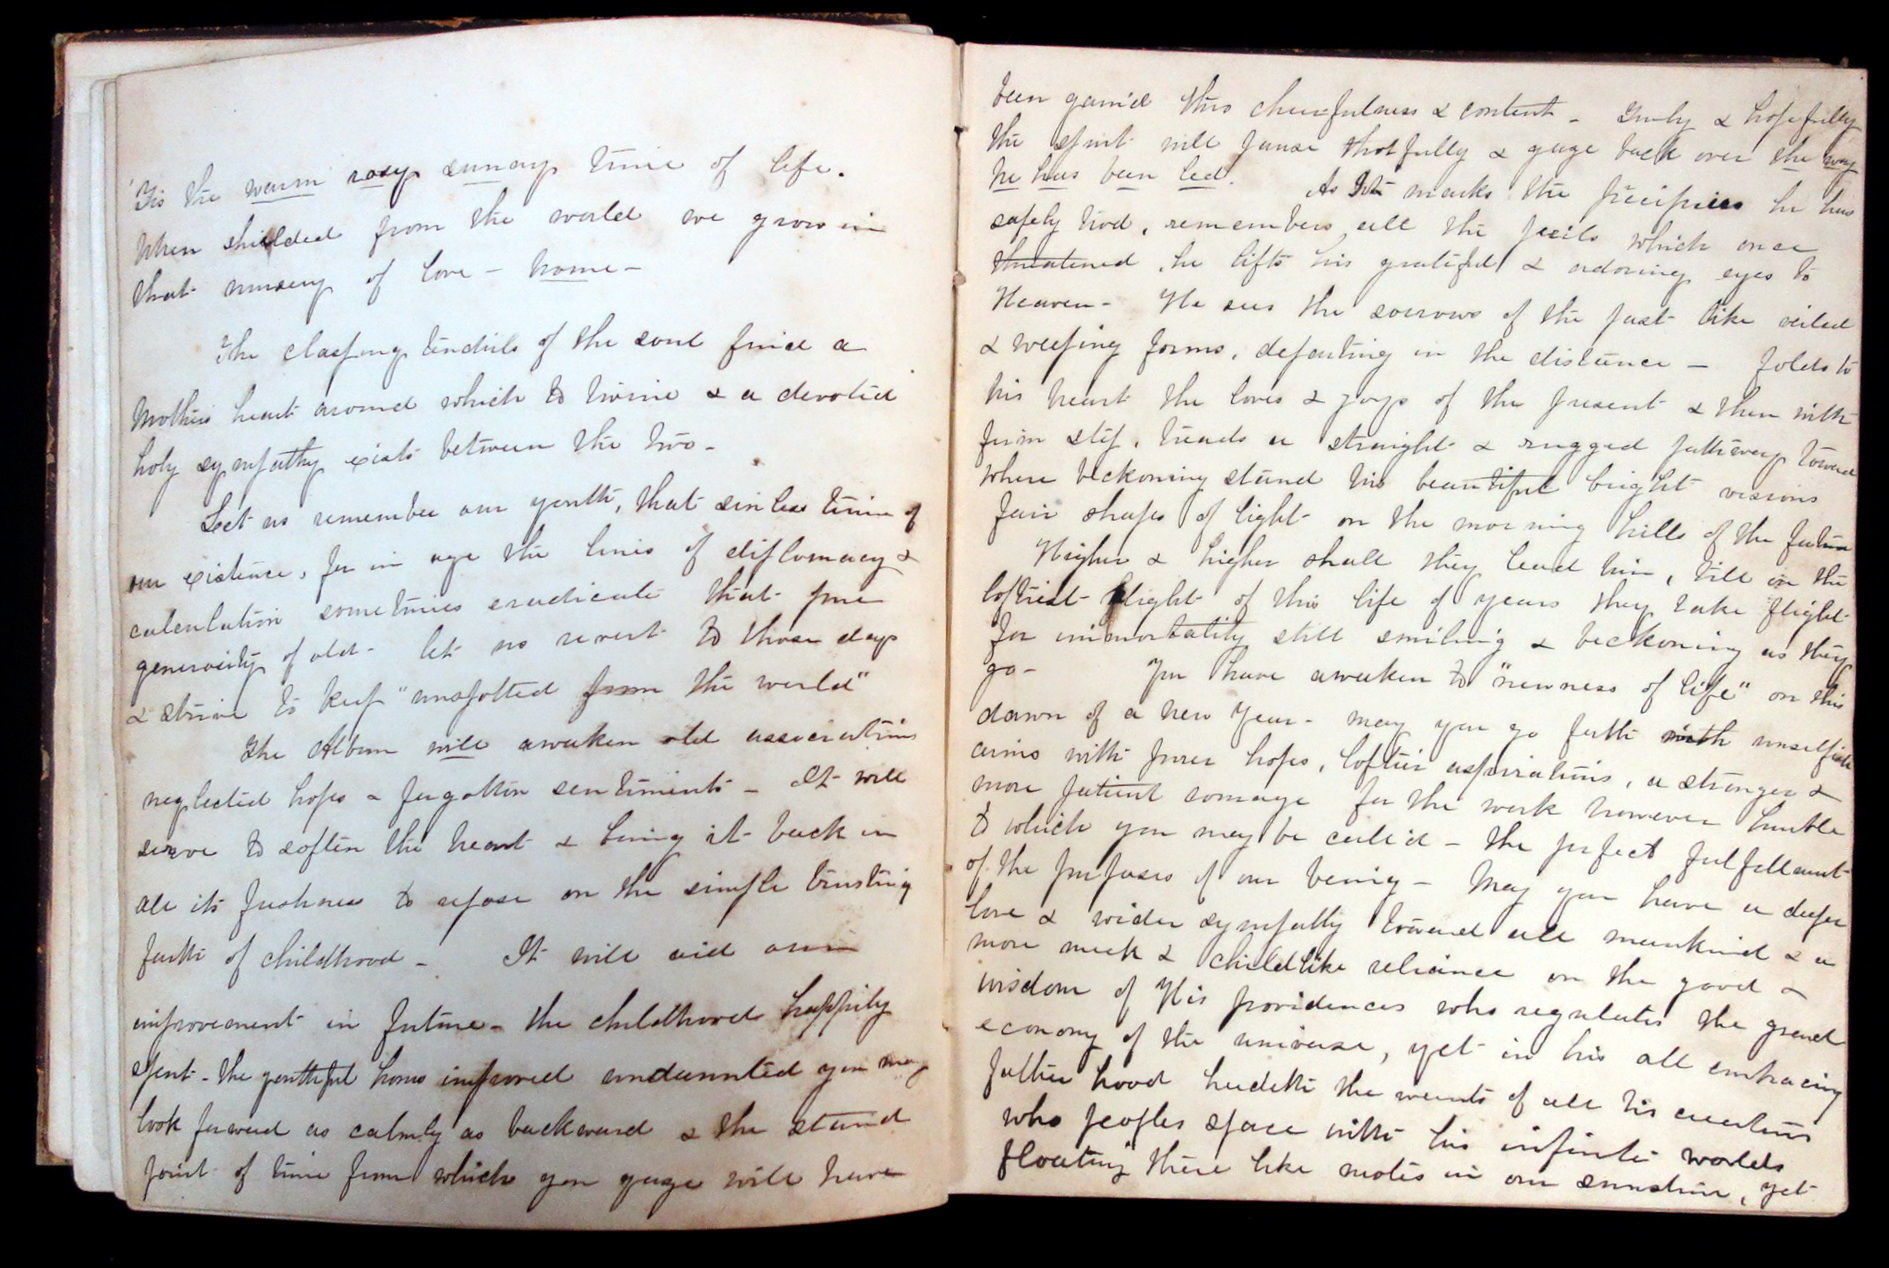 'Tis the warm rosy sunny time of life.
When shielded from the world we grow in
that nursery of love - home -
The clasping tendrils of the soul find a
Mothers heart around which to twine & a devoted
holy sympathy exists between the two -
Let us remember our youth, that sinless time of
our existence, for in age the lines of diplomacy &
calculation sometimes eradicate that pure
generosity of old - let us revert to those days
& strive to keep "unspotted from the world"
The Album will awaken old associations
neglected hopes & forgotten sentiments - It will
serve to soften the heart & bring it back in
all its freshness to repose on the simple trusting
faith of childhood - It will aid our
improvement in future - the childhood happily
spent - the youthful hours improved undaunted you may
look forward as calmly as backward & the stand
point of time from which you gaze will have
been gain'd thro cheerfulness & content - Truly & hopefully
the spirit will pause thotfully & gaze back over the way
he has been led. As he marks the precipices he has
safely trod, remembers all the perils which once
threatened, he lifts his grateful & adoring eyes to
Heaven - He sees the sorrows of the past like veiled
& weeping forms, departing in the distance - folds to
his heart the loves & joys of the present & then with
firm step, treads a straight & rugged pathway toward
where beckoning stand his beautiful bright visions
fair shapes of light on the morning hills of the future
Higher & higher shall they lead him, till in the
loftiest flight of this life of years they take flight
for immortality still smiling & beckoning as they
go - You have awaken to "newness of life" on this
dawn of a new Year - may you go forth with unselfish
aims with purer hopes, loftier aspirations, a stronger &
more patient courage for the work however humble
to which you may be call'd - the perfect fulfillment
of the purposes of our being - May you have a deeper
love & wider sympathy toward all mankind & a
more meek & childlike reliance on the good &
wisdom of His providences who regulates the grand
economy of the universe, yet in his all embracing
father hood heedeth the wants of all his creatures
who peoples space with his infinite worlds
floating there like motes in our sunshine, yet